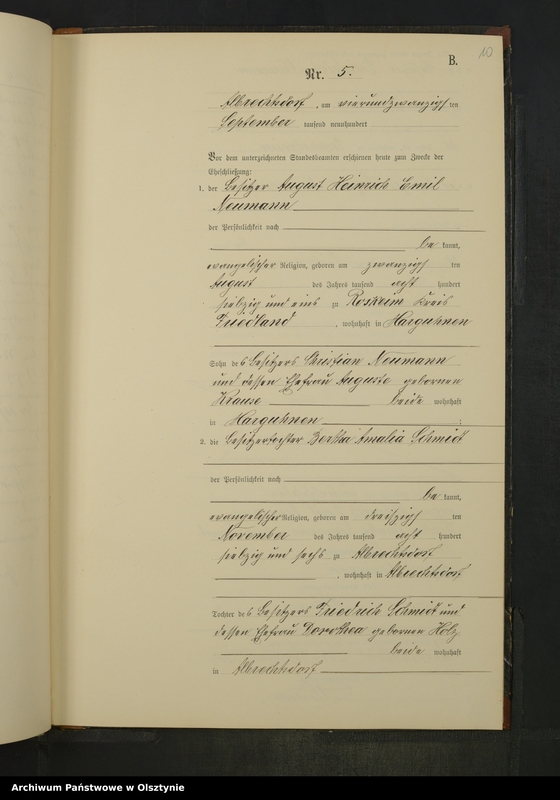 10
B.
Nr. 5.
Albrechtsdorf, am vierundzwanzigsten
September tausend neunhundert
Vor dem unterzeichneten Standesbeamten erschienen heute zum Zwecke der
Eheschließung:
1. der Besitzer August Heinrich Emil
Neumann
der Persönlichkeit nach
be kannt,
evangelischer Religion, geboren am zwanzigsten
August des Jahres tausend acht hundert
siebzig und eins zu Roskeim Kreis
Friedland, wohnhaft in Harguhnen
Sohn des Besitzers Christian Neumann
und dessen Ehefrau Auguste gebornen
Krause beide wohnhaft
in Harguhnen;
2. die Besitzertochter Bertha Amalia Schmidt
der Persönlichkeit nach
be kannt,
evangelischer Religion, geboren am dreiszigsten
November des Jahres tausend acht hundert
siebzig und sechs zu Albrechtsdorf
, wohnhaft in Albrechtsdorf
Tochter des Besitzers Friedrich Schmidt und
dessen Ehefrau Dorothea gebornen Holz
beide wohnhaft
in Albrechtsdorf
Archiwum Państwowe w Olsztynie